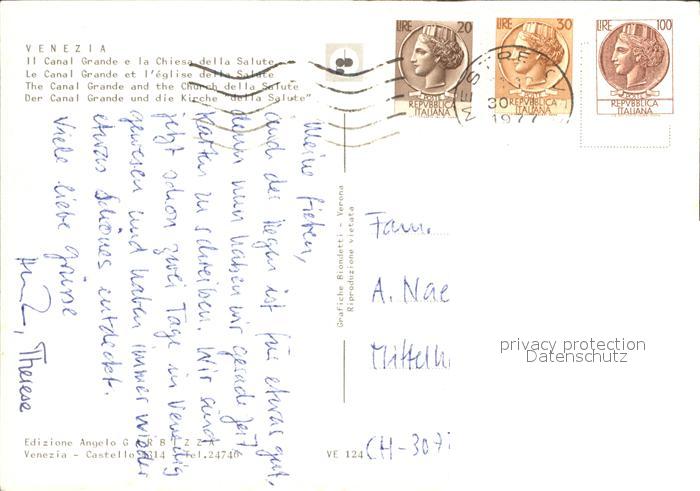 VENEZIA
Il Canal Grande e la Chiesa della Salute
Le Canal Grande et l'église della Salute
The Canal Grande and the Church della Salute
Der Canal Grande und die Kirche "della Salute"
LIRE 20
REPVBBLICA
ITALIANA
LIRE 30
REPVBBLICA
ITALIANA
LIRE 100
REPVBBLICA
ITALIANA
MESTRE
30
1977
Meine lieben,
auch der Regen ist für etwas gut,
denn nun haben wir gerade Zeit
Karten zu schreiben. Wir sind
jetzt schon zwei Tage in Venedig
gewesen und haben immer wieder
etwas Schönes entdeckt.
Viele liebe Grüsse
Therese
Grafiche Biondetti - Verona
Riproduzione vietata
Fam.
A. Nae
Mittelh
CH-307
privacy protection
Datenschutz
Edizione Angelo
Venezia - Castello Tel.24740
VE 124